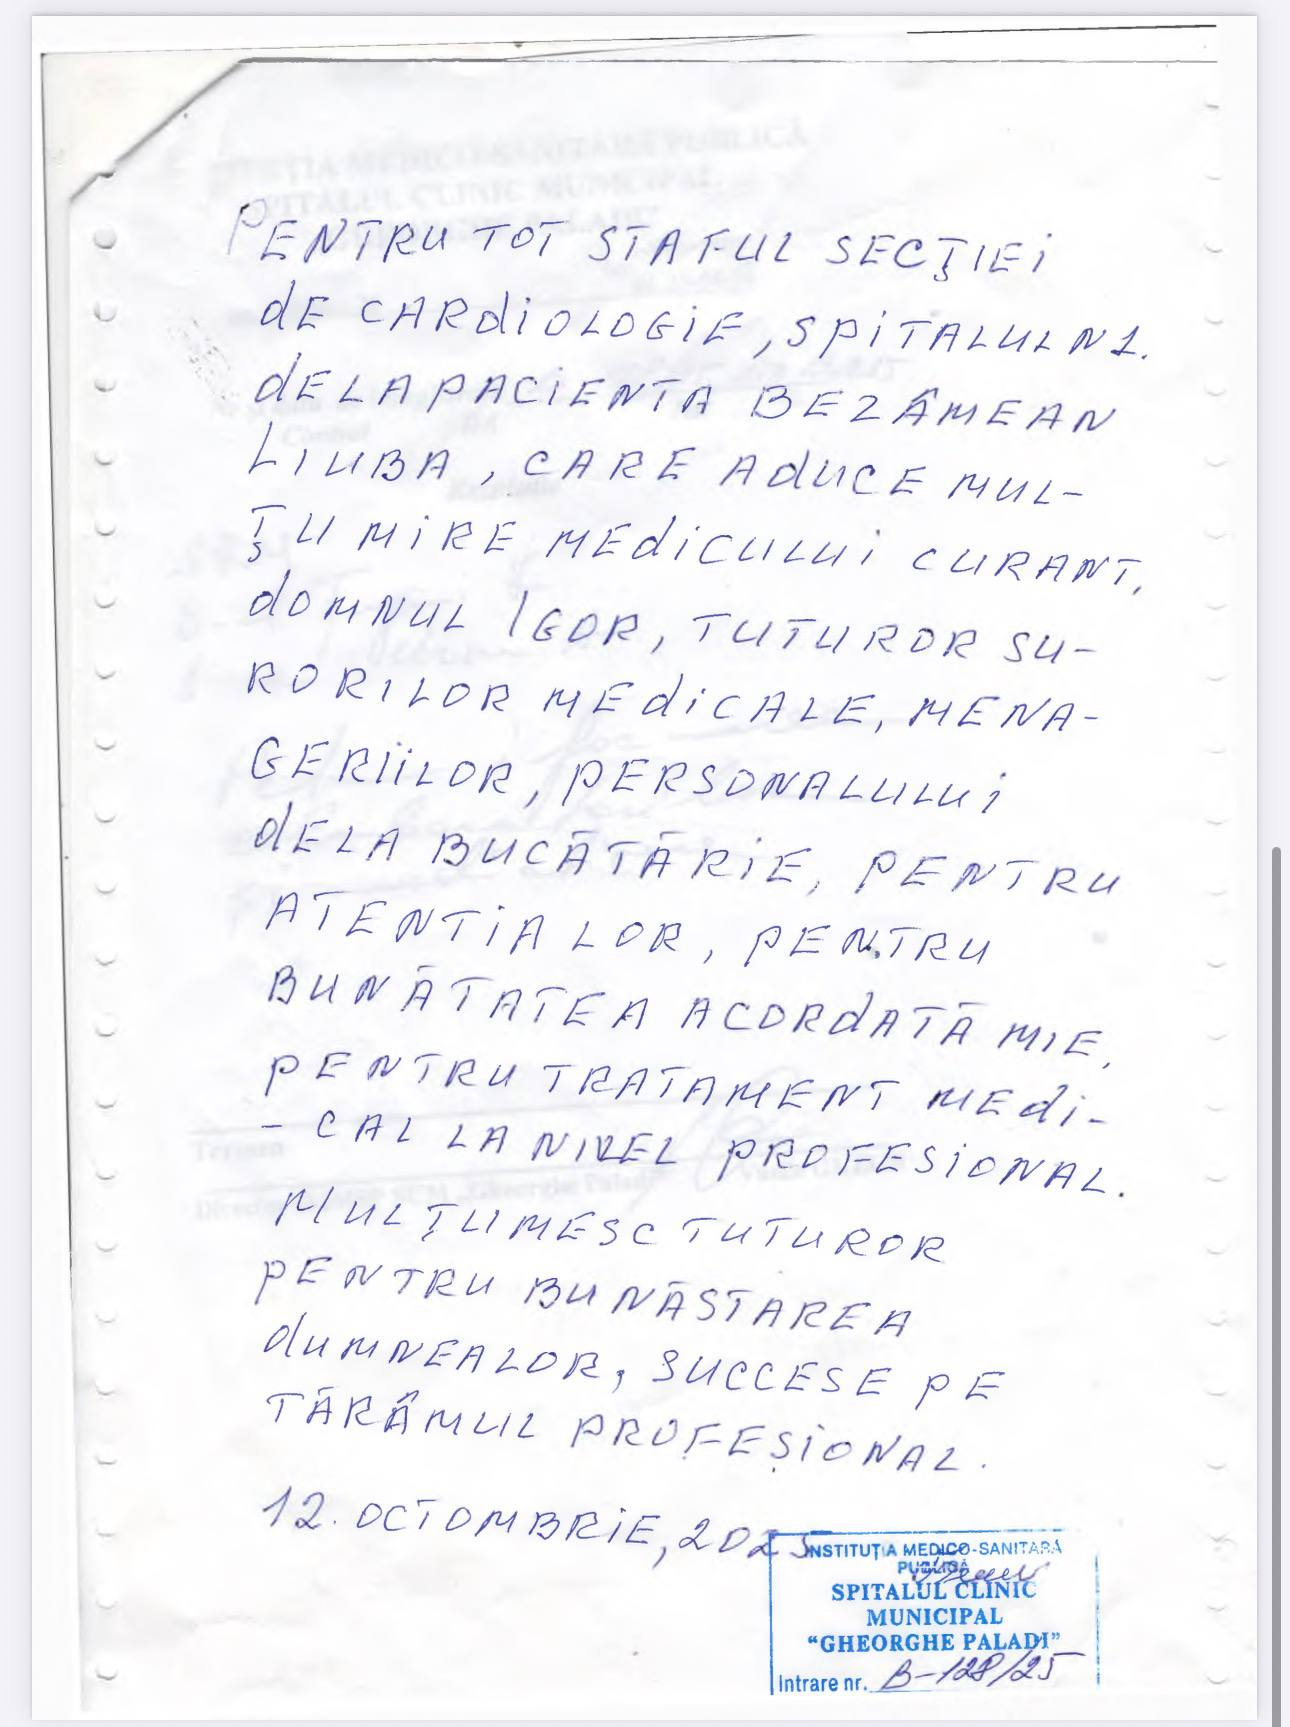 PENTRU TOT STAFUL SECŢIEi
dE CARdiOLOGiE, SPiTALUL N1.
dE LA PACiENTA BEZÂMEAN
LIUBA, CARE AdUCE MUL-
ŢUMiRE MEdiCULUi CURANT,
dOMNUL IGOR, TUTUROR SU-
RORILOR MEdiCALE, MENA-
GERiiLOR, PERSONALULUi
dE LA BUCĂTĂRiE, PENTRU
ATENTiA LOR, PENTRU
BUNĂTATEA ACORdATĂ MIE,
PENTRU TRATAMENT MEdi-
- CAL LA NIVEL PROFESiONAL.
MULŢUMESC TUTUROR
PENTRU BUNĂSTAREA
dUMNEALOR, SUCCESE PE
TĂRÂMUL PROFESiONAL.
12. OCTOMBRiE, 2025
INSTITUȚIA MEDICO-SANITARĂ
PUBLICĂ
SPITALUL CLINIC
MUNICIPAL
“GHEORGHE PALADI”
Intrare nr. B-128/25